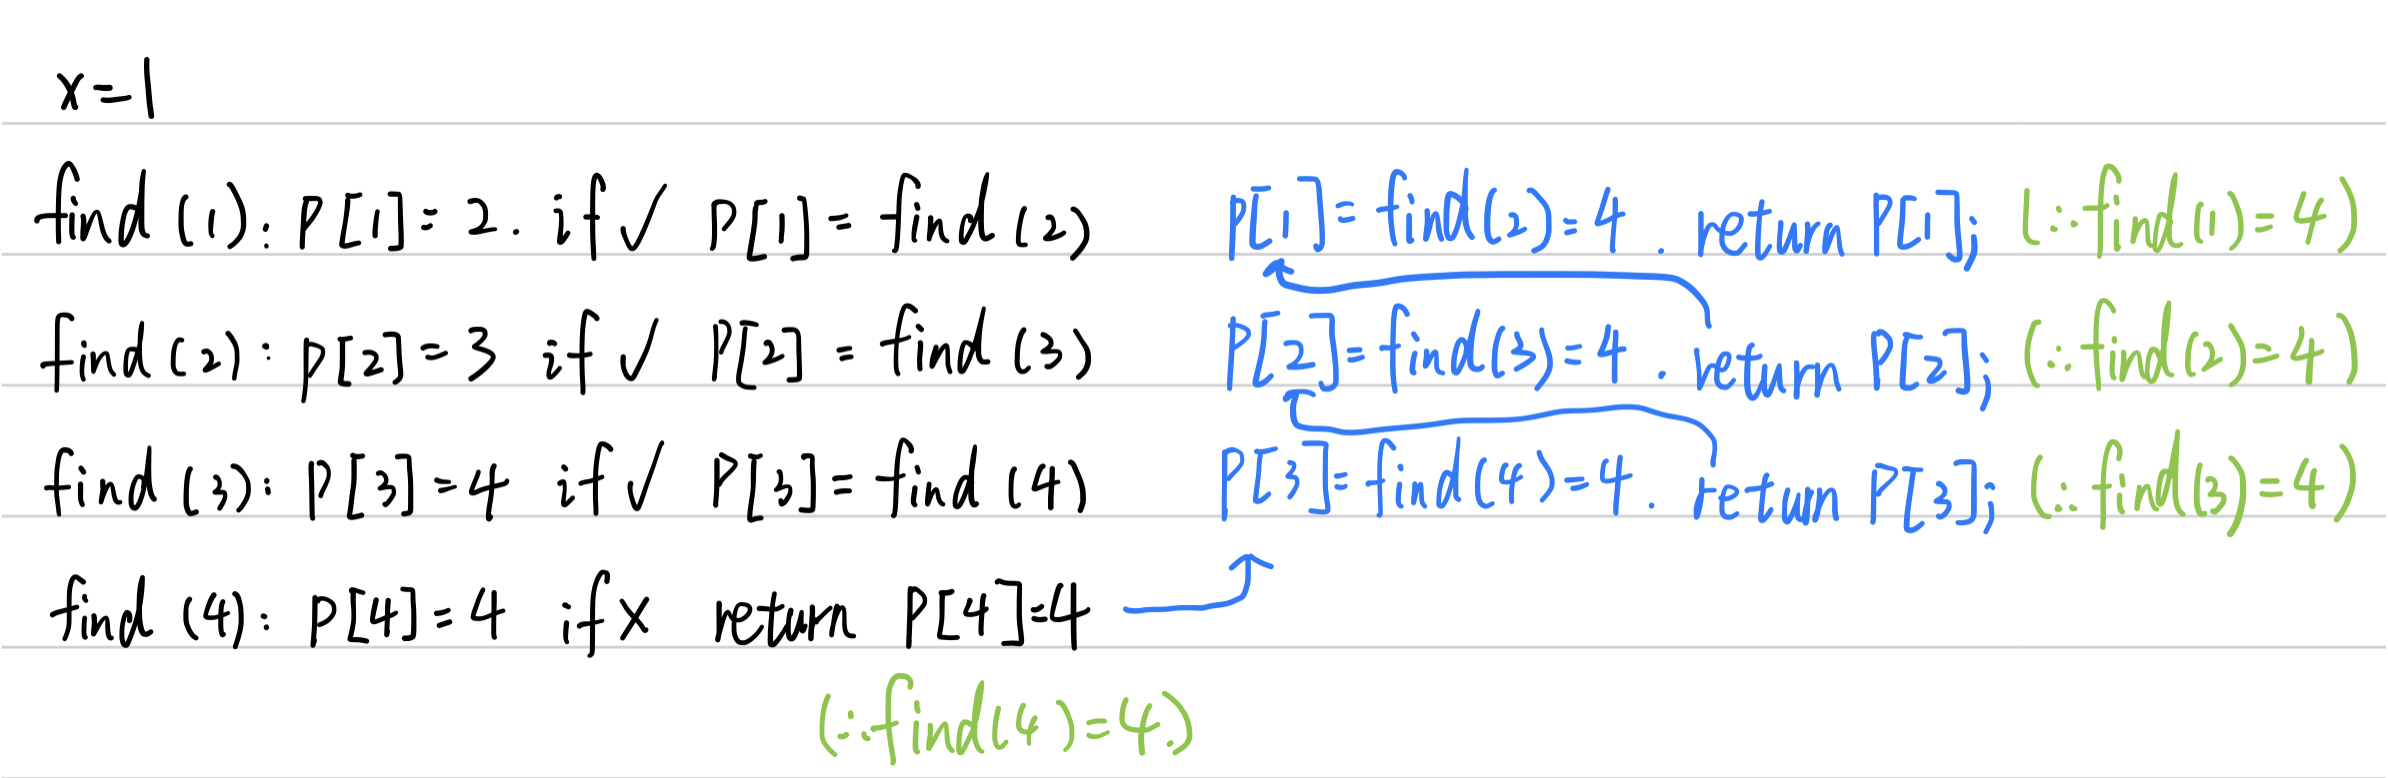 x=1
find(1): P[1]=2. if✓ P[1]=find(2) P[1]=find(2)=4. return P[1]; (∴find(1)=4)
find(2): p[2]=3 if✓ P[2]=find(3) P[2]=find(3)=4. return P[2]; (∴find(2)=4)
find(3): P[3]=4 if✓ P[3]=find(4) P[3]=find(4)=4. return P[3]; (∴find(3)=4)
find(4): p[4]=4 if x return P[4]=4
(∴find(4)=4.)